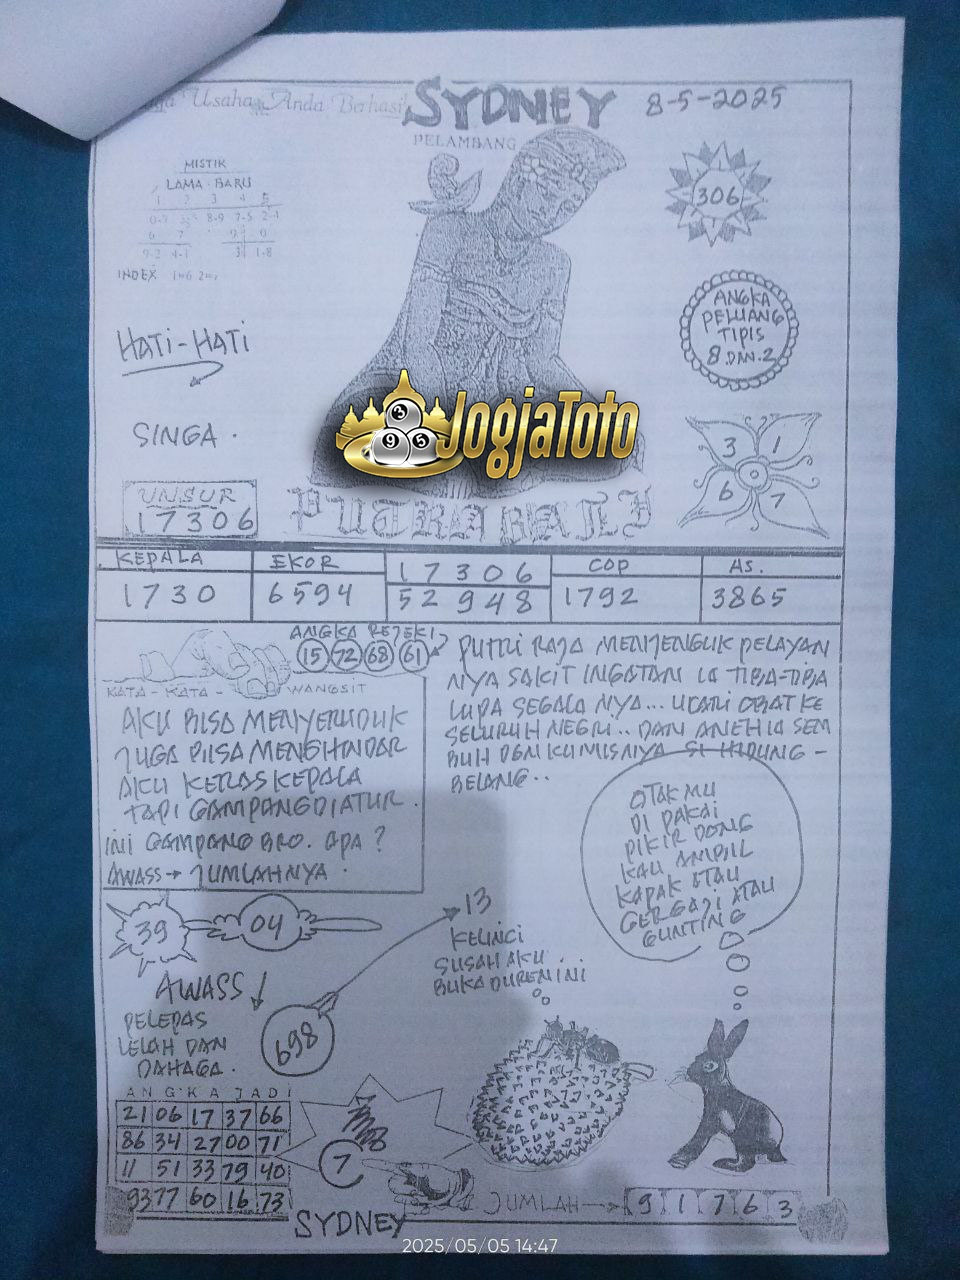 Usaha Anda Berhasil
SYDNEY 8-5-2025
PELAMBANG
MISTIK
LAMA · BARU
1 2 3 4 5
8-9 7-5 2-1
6 7 9 0
9-2 4-1 3 1-8
INDEX 1=6 2=7
306
ANGKA
PELUANG
TIPIS
8 DAN 2
HATI-HATI
SINGA.
UNSUR
17306
3 1
6 7
JogjaToto
3
9 5
PUTRA BALI
KEPALA EKOR 17306 COP AS.
1730 6594 52948 1792 3865
ANGKA REJEKI
15 72 68 61
KATA-KATA- WANGSIT
AKU BISA MENYERUDUK
JUGA BISA MENGHINDAR
AKU KERAS KEPALA
TAPI GAMPANG DIATUR.
INI GAMPANG BRO. APA?
AWASS→ JUMLAHNYA.
PUTRI RAJA MENJENGUK PELAYAN
NYA SAKIT INGATAN IA TIBA-TIBA
LUPA SEGALA NYA... UCARI OBAT KE
SELURUH NEGRI.. DAN ANEH IA SEM
BUH DGN KUMISNYA SI HIDUNG -
BELANG..
OTAK MU
DI PAKAI
PIKIR DONG
KAU AMBIL
KAPAK ATAU
GERGAJI ATAU
GUNTING
39 04
13
KELINCI
SUSAH AKU
BUKA DUREN INI
AWASS
PELEPAS
LELAH DAN
DAHAGA.
698
ANGKA JADI
21 06 17 37 66
86 34 27 00 71
11 51 33 79 40
93 77 60 16 73
7
JUMLAH→ 9 1 7 6 3
SYDNEY
2025/05/05 14:47